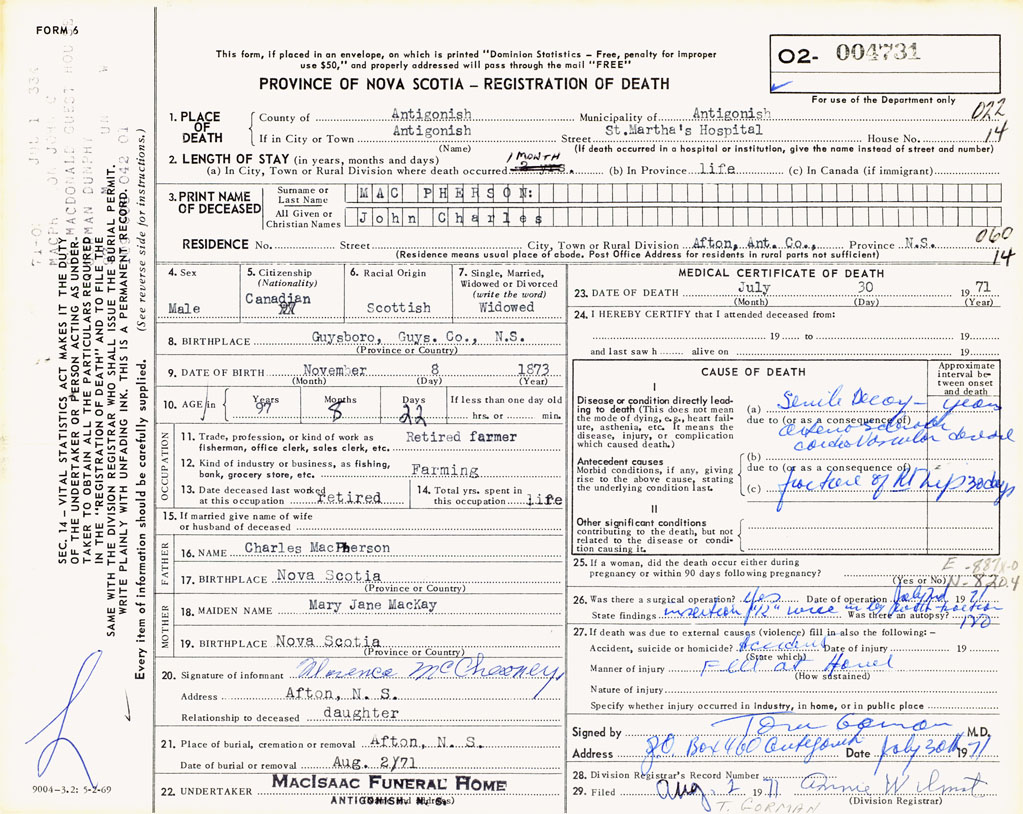 FORM 6
This form, if placed in an envelope, on which is printed "Dominion Statistics – Free, penalty for improper
use $50," and properly addressed will pass through the mail "FREE"
PROVINCE OF NOVA SCOTIA – REGISTRATION OF DEATH
02- 004731
For use of the Department only
022
14
1. PLACE OF DEATH
County of Antigonish Municipality of Antigonish
If in City or Town Antigonish Street St.Martha's Hospital House No.
(Name) (If death occurred in a hospital or institution, give the name instead of street and number)
2. LENGTH OF STAY (in years, months and days)
1 MONTH
(a) In City, Town or Rural Division where death occurred (b) In Province life (c) In Canada (if immigrant)
3. PRINT NAME OF DECEASED
Surname or Last Name MAC PHERSON:
All Given or Christian Names John Charles
RESIDENCE No. Street City, Town or Rural Division Afton, Ant. Co., Province N.S.
(Residence means usual place of abode. Post Office Address for residents in rural parts not sufficient)
060
14
4. Sex
Male
5. Citizenship (Nationality)
Canadian
6. Racial Origin
Scottish
7. Single, Married, Widowed or Divorced (write the word)
Widowed
8. BIRTHPLACE Guysboro, Guys. Co., N.S.
(Province or Country)
9. DATE OF BIRTH November 8 1873
(Month) (Day) (Year)
10. AGE in Years Months Days If less than one day old
97 8 22 hrs. or min.
OCCUPATION
11. Trade, profession, or kind of work as fisherman, office clerk, sales clerk, etc. Retired farmer
12. Kind of industry or business, as fishing, bank, grocery store, etc. Farming
13. Date deceased last worked at this occupation retired
14. Total yrs. spent in this occupation life
15. If married give name of wife or husband of deceased
FATHER
16. NAME Charles MacPherson
17. BIRTHPLACE Nova Scotia
(Province or Country)
MOTHER
18. MAIDEN NAME Mary Jane MacKay
19. BIRTHPLACE Nova Scotia
(Province or Country)
20. Signature of informant Florence
Address Afton, N. S.
Relationship to deceased daughter
21. Place of burial, cremation or removal Afton, N. S.
Date of burial or removal Aug. 2/71
22. UNDERTAKER MacIsaac Funeral Home
ANTIGONISH, N. S.
9004-3.2: 5-2-69
MEDICAL CERTIFICATE OF DEATH
23. DATE OF DEATH July 30 1971
(Month) (Day) (Year)
24. I HEREBY CERTIFY that I attended deceased from:
19 to 19
and last saw h alive on 19
CAUSE OF DEATH
Approximate interval between onset and death
I
Disease or condition directly leading to death (This does not mean the mode of dying, e.g., heart failure, asthenia, etc. It means the disease, injury, or complication which caused death.)
(a) Senile Decay – years
due to (or as a consequence of)
cardio Vascular disease
Antecedent causes
Morbid conditions, if any, giving rise to the above cause, stating the underlying condition last.
(b)
due to (or as a consequence of)
(c) fracture of Rt hip 30 days
II
Other significant conditions
contributing to the death, but not related to the disease or condition causing it.
25. If a woman, did the death occur either during pregnancy or within 90 days following pregnancy?
(Yes or No)
N-820.4
26. Was there a surgical operation? Yes Date of operation July 2nd 1971
State findings insertion Was there an autopsy? no
27. If death was due to external causes (violence) fill in also the following: –
Accident, suicide or homicide? Accident Date of injury 19
(State which)
Manner of injury Fell at
(How sustained)
Nature of injury
Specify whether injury occurred in industry, in home, or in public place
Signed by Tom Gorman M.D.
Address P.O. Box 460 Antigonish Date July 30th 1971
28. Division Registrar's Record Number
29. Filed Aug. 2 1971 Annie
(Division Registrar)
T. GORMAN
SEC. 14 – VITAL STATISTICS ACT MAKES IT THE DUTY
OF THE UNDERTAKER OR PERSON ACTING AS UNDER-
TAKER TO OBTAIN ALL THE PARTICULARS REQUIRED
IN THE "REGISTRATION OF DEATH" AND TO FILE THE
SAME WITH THE DIVISION REGISTRAR WHO SHALL ISSUE THE BURIAL PERMIT.
WRITE PLAINLY WITH UNFADING INK. THIS IS A PERMANENT RECORD.
Every item of information should be carefully supplied. (See reverse side for instructions.)